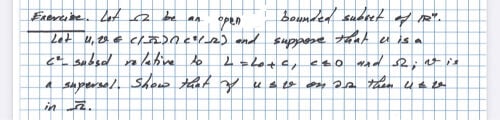 Exercise. Let Ω be an open bounded subset of ℝⁿ.
Let u, v ∈ C(Ω̅) ∩ C²(Ω) and suppose that u is a
C² subsol relative to L = L₀ + c, c ≤ 0 and Ω; v is
a supersol. Show that if u ≤ v on ∂Ω then u ≤ v
in Ω̅.